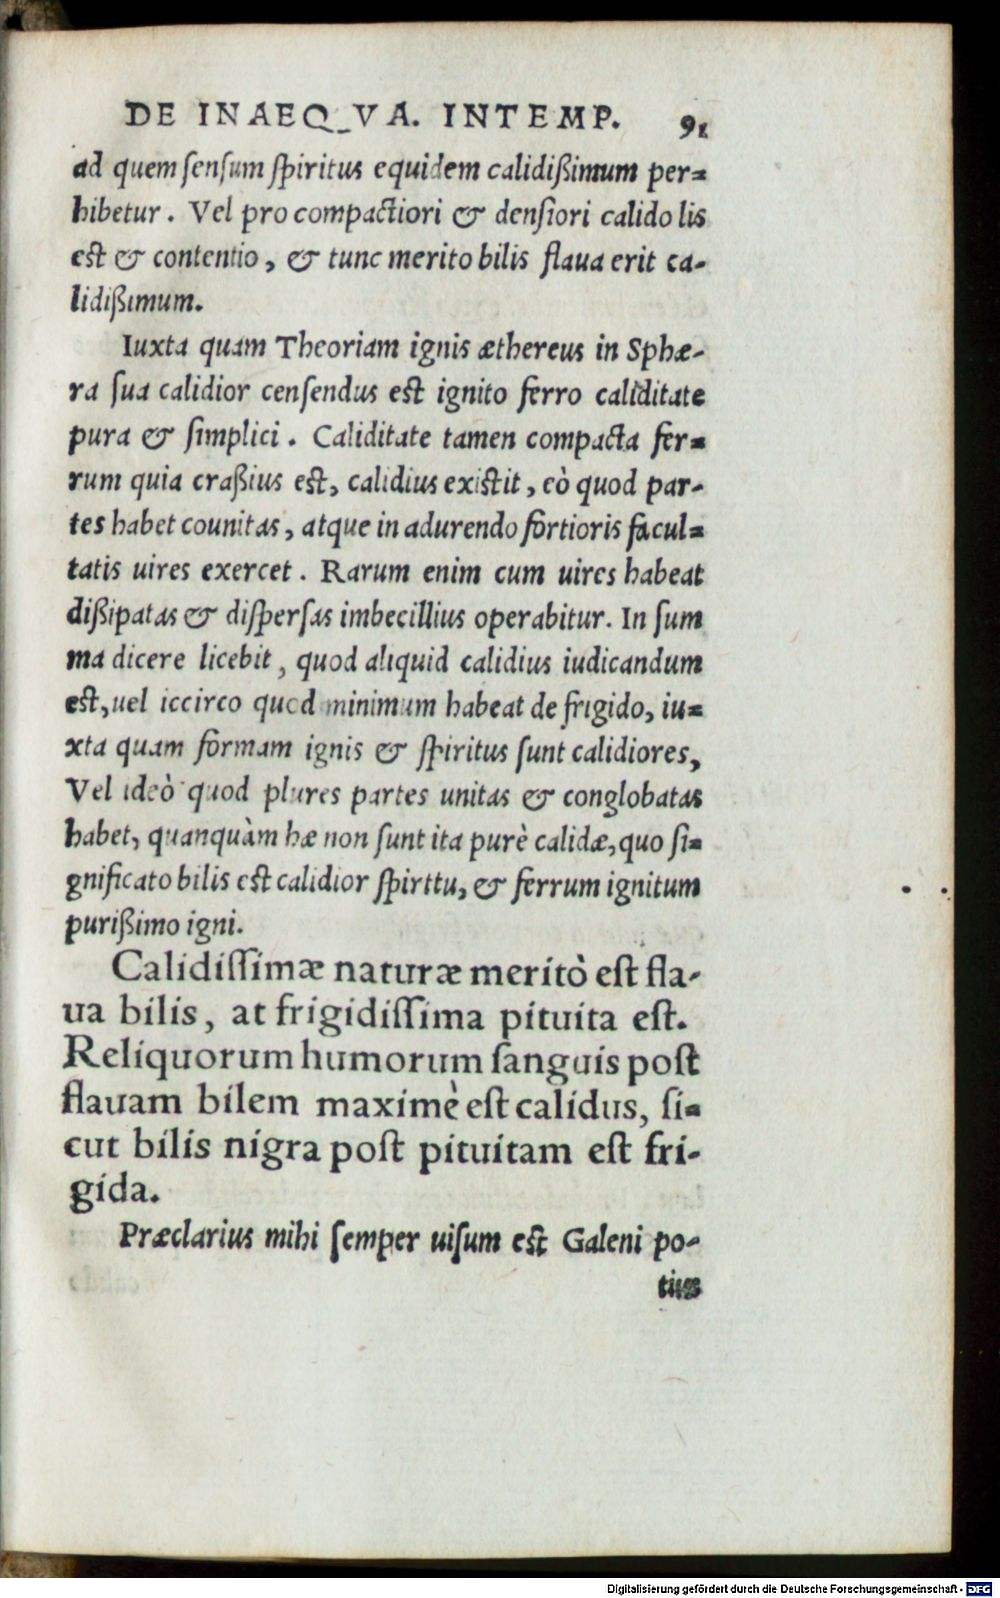 DE INAEQ_VA. INTEMP. 91
ad quem ſenſum ſpiritus equidem calidißimum per=
hibetur. Vel pro compactiori & denſiori calido lis
est & contentio, & tunc merito bilis flaua erit ca-
lidißimum.
Iuxta quam Theoriam ignis æthereus in Sphæ-
ra ſua calidior cenſendus est ignito ferro caliditate
pura & ſimplici. Caliditate tamen compacta fer=
rum quia craßius est, calidius existit, eò quod par-
tes habet counitas, atque in adurendo fortioris facul=
tatis uires exercet. Rarum enim cum uires habeat
dißipatas & diſperſas imbecillius operabitur. In ſum
ma dicere licebit, quod aliquid calidius iudicandum
est, uel iccirco quod minimum habeat de frigido, iu=
xta quam formam ignis & ſpiritus ſunt calidiores,
Vel ideò quod plures partes unitas & conglobatas
habet, quanquàm hæ non ſunt ita purè calidæ, quo ſi=
gnificato bilis est calidior ſpirttu, & ferrum ignitum
purißimo igni.
Calidiſſimæ naturæ meritò eſt fla-
ua bilis, at frigidiſſima pituita eſt.
Reliquorum humorum ſanguis poſt
flauam bilem maximè eſt calidus, ſi=
cut bilis nigra poſt pituitam eſt fri-
gida.
Præclarius mihi ſemper uiſum est Galeni po-
tius
Digitalisierung gefördert durch die Deutsche Forschungsgemeinschaft - DFG